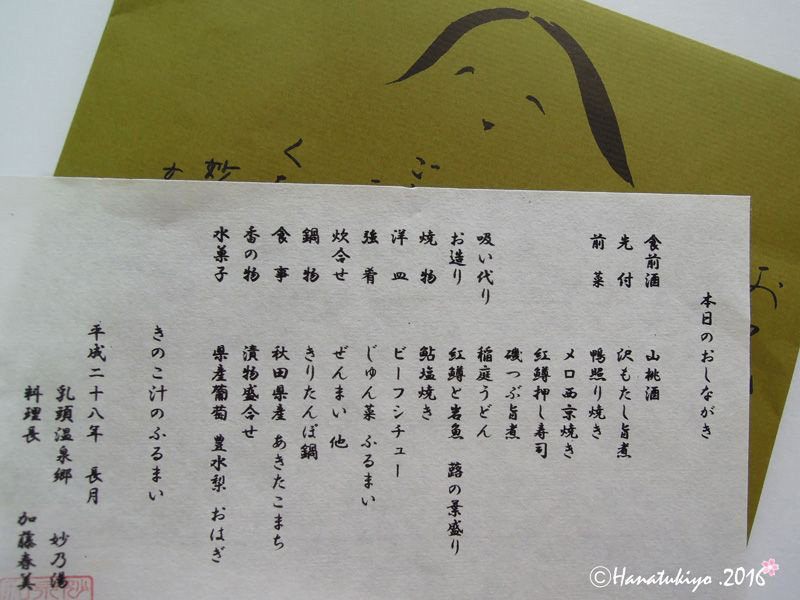 本日のおしながき
食前酒 山桃酒
先付 沢もたし旨煮
前菜 鴨照り焼き
メロ西京焼き
紅鱒押し寿司
磯つぶ旨煮
吸い代り 稲庭うどん
お造り 紅鱒と岩魚 蕗の葉盛り
焼物 鮎塩焼き
洋皿 ビーフシチュー
強肴 じゅん菜 ふるまい
炊合せ ぜんまい 他
鍋物 きりたんぽ鍋
食事 秋田県産 あきたこまち
香の物 漬物盛合せ
水菓子 県産葡萄 豊水梨 おはぎ
きのこ汁のふるまい
平成二十八年 長月
乳頭温泉郷 妙乃湯
料理長 加藤春美
©Hanatukiyo.2016